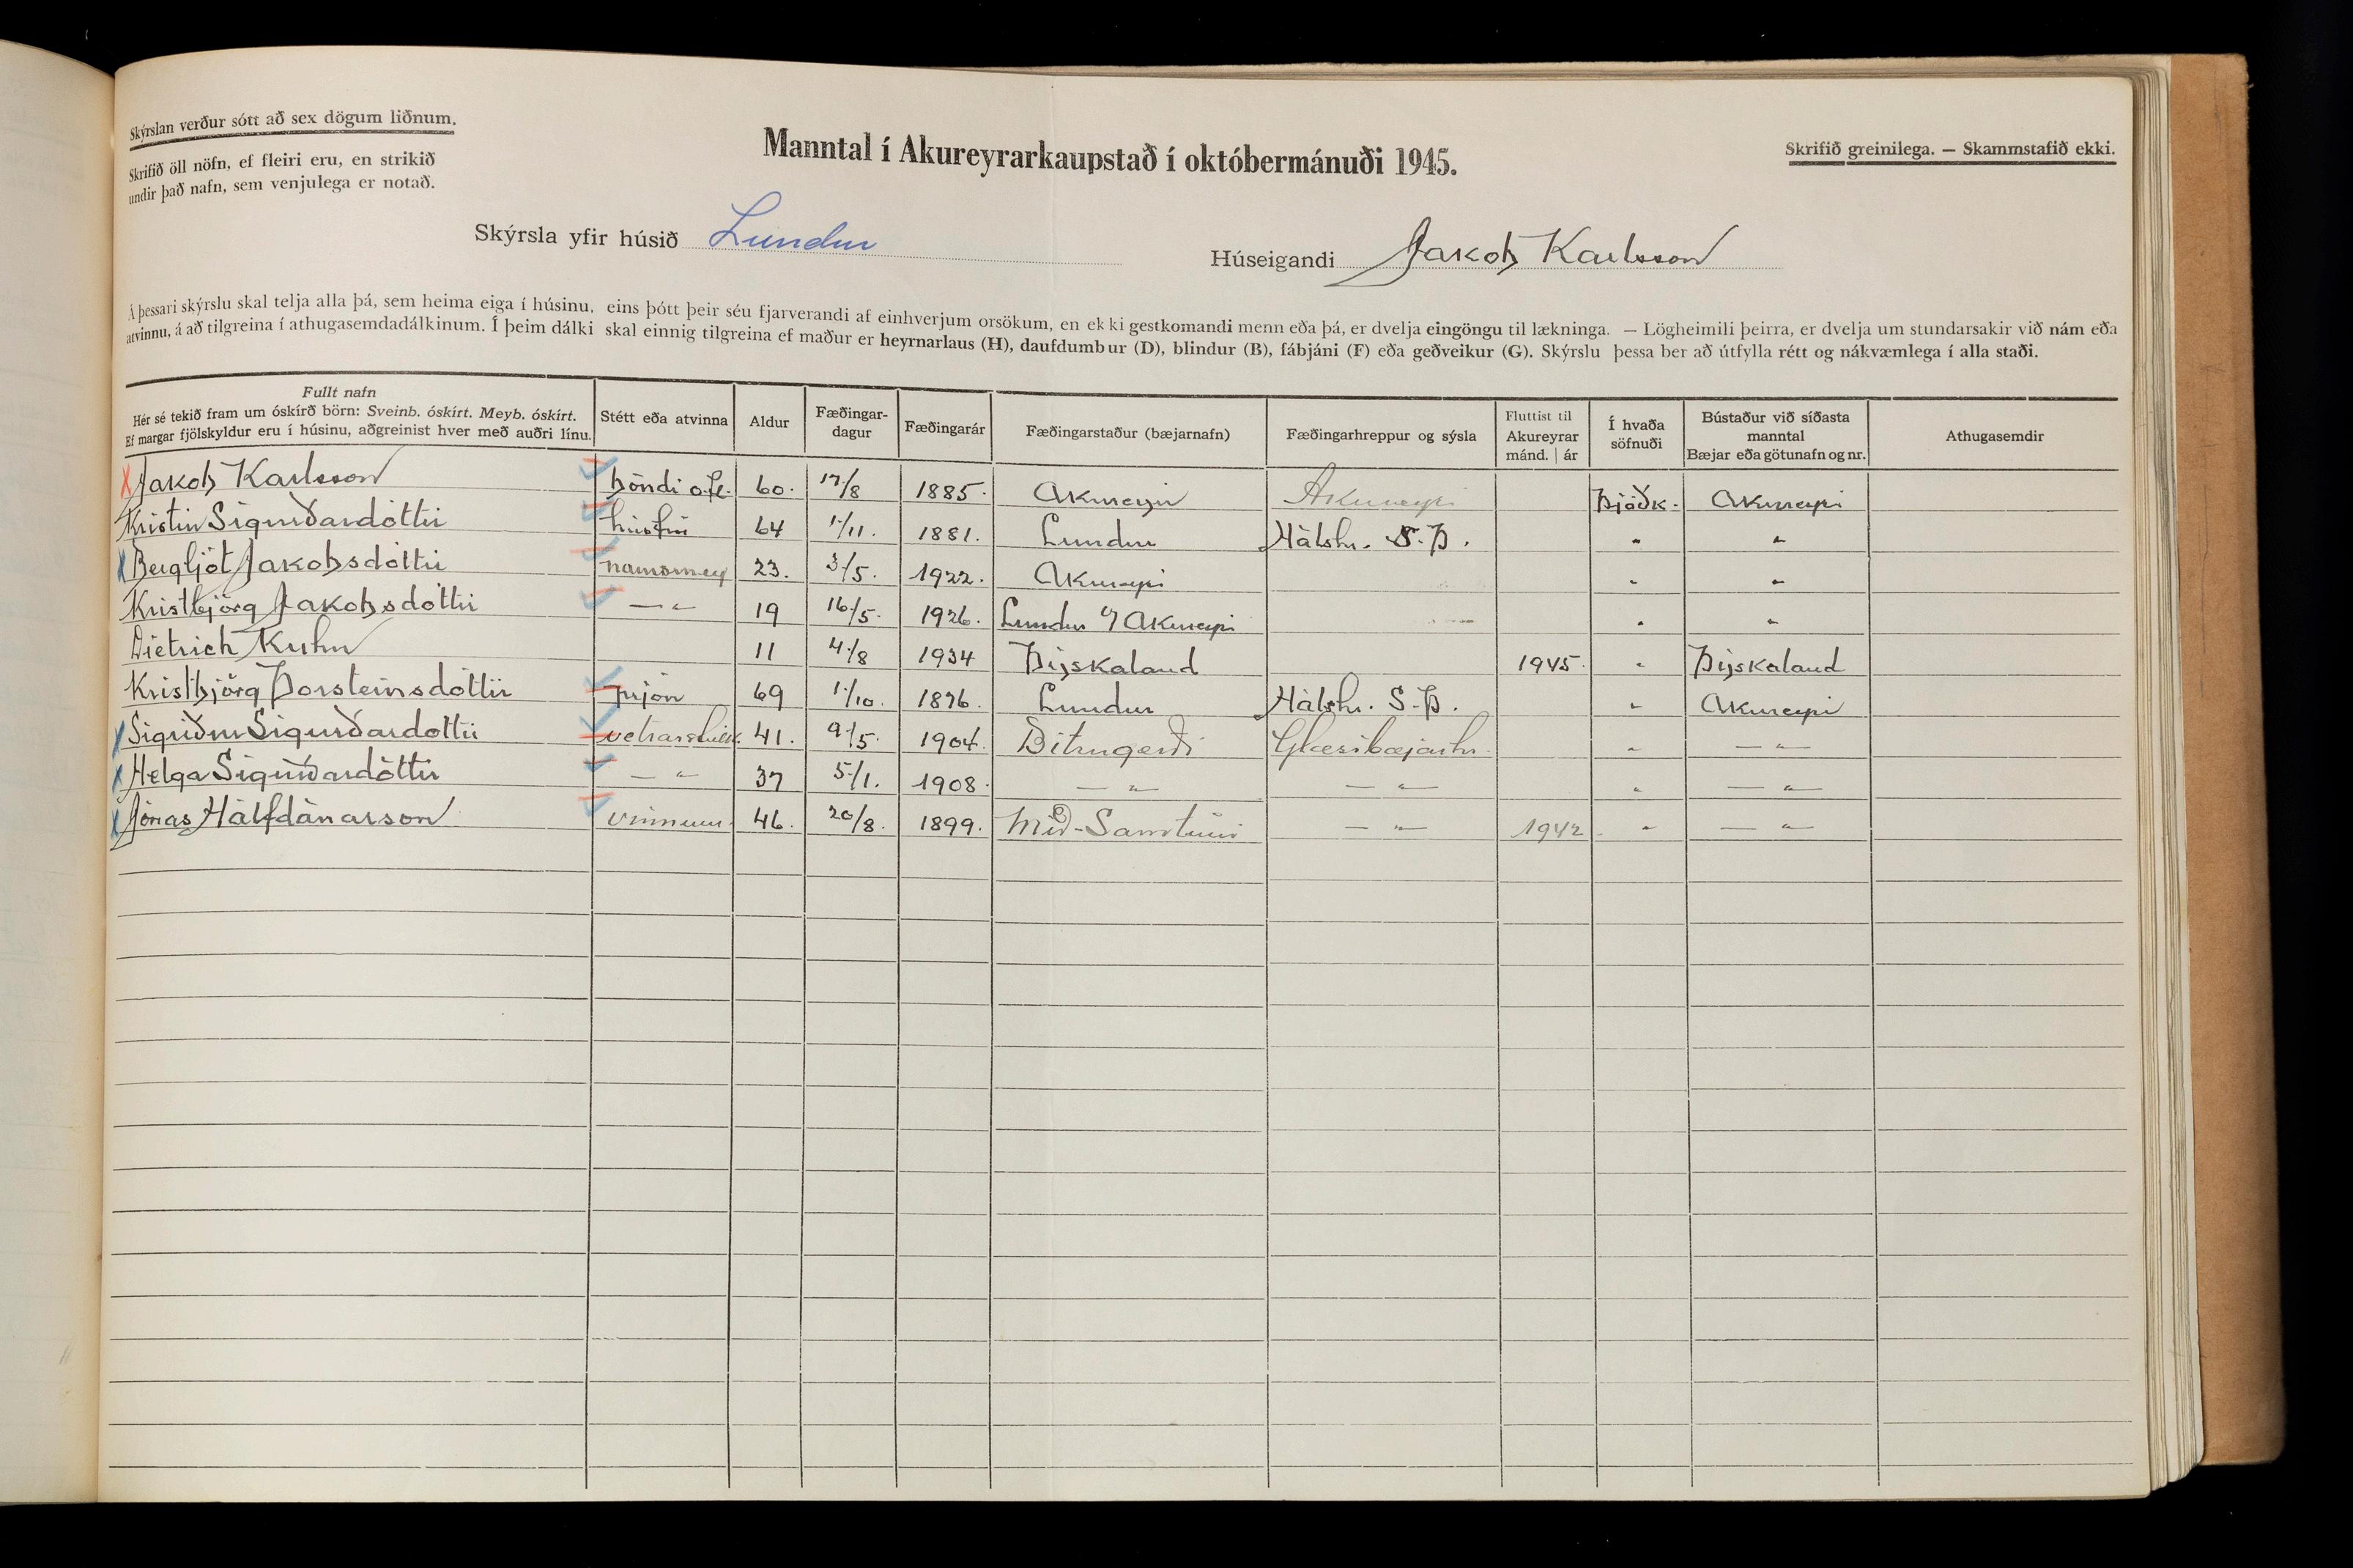 Skýrslan verður sótt að sex dögum liðnum.
Skrifið öll nöfn, ef fleiri eru, en strikið
undir það nafn, sem venjulega er notað.
Manntal í Akureyrarkaupstað í októbermánuði 1945.
Skrifið greinilega. — Skammstafið ekki.
Skýrsla yfir húsið Lundur
Húseigandi Jakob Karlsson
Á þessari skýrslu skal telja alla þá, sem heima eiga í húsinu, eins þótt þeir séu fjarverandi af einhverjum orsökum, en ekki gestkomandi menn eða þá, er dvelja eingöngu til lækninga. — Lögheimili þeirra, er dvelja um stundarsakir við nám eða
atvinnu, á að tilgreina í athugasemdadálkinum. Í þeim dálki skal einnig tilgreina ef maður er heyrnarlaus (H), daufdumbur (D), blindur (B), fábjáni (F) eða geðveikur (G). Skýrslu þessa ber að útfylla rétt og nákvæmlega í alla staði.
Fullt nafn
Hér sé tekið fram um óskírð börn: Sveinb. óskírt. Meyb. óskírt.
Ef margar fjölskyldur eru í húsinu, aðgreinist hver með auðri línu.
Stétt eða atvinna
Aldur
Fæðingar-
dagur
Fæðingarár
Fæðingarstaður (bæjarnafn)
Fæðingarhreppur og sýsla
Fluttist til
Akureyrar
mánd. | ár
Í hvaða
söfnuði
Bústaður við síðasta
manntal
Bæjar eða götunafn og nr.
Athugasemdir
X Jakob Karlsson bóndi o.fl. 60. 17/8 1885. Akureyri Akureyri Þjóðk. Akureyri
Kristín Sigurðardóttir húsfrú 64 1/11. 1881. Lundur Hálshr. S.Þ. " "
X Bergljót Jakobsdóttir námsmey 23. 3/5. 1922. Akureyri " "
Kristbjörg Jakobsdóttir — " 19 16/5. 1926. Lundur v/ Akureyri " "
Dietrich Kuhn 11 4/8 1934 Þýskaland 1945. " Þýskaland
Kristbjörg Þorsteinsdóttir prjón 69 1/10. 1876. Lundur Hálshr. S-Þ. " Akureyri
X Sigríður Sigurðardóttir 41. 9/5. 1904. Bitrugerði Glæsibæjarhr. " — " —
X Helga Sigurðardóttir — " 37 5/1. 1908. — " — — " — " — " —
X Jónas Hálfdánarson vinnum. 46. 20/8. 1899. Mið-Samtúni — " — 1942 " — " —